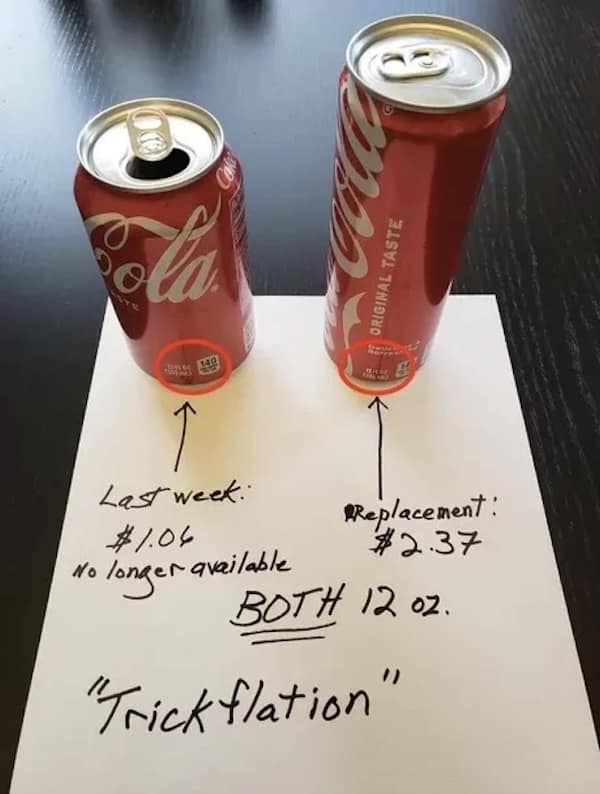 Cola
Coke
140
Cola
ORIGINAL TASTE
Last week:
$1.06
No longer available
Replacement:
$2.37
BOTH 12 oz.
"Trickflation"